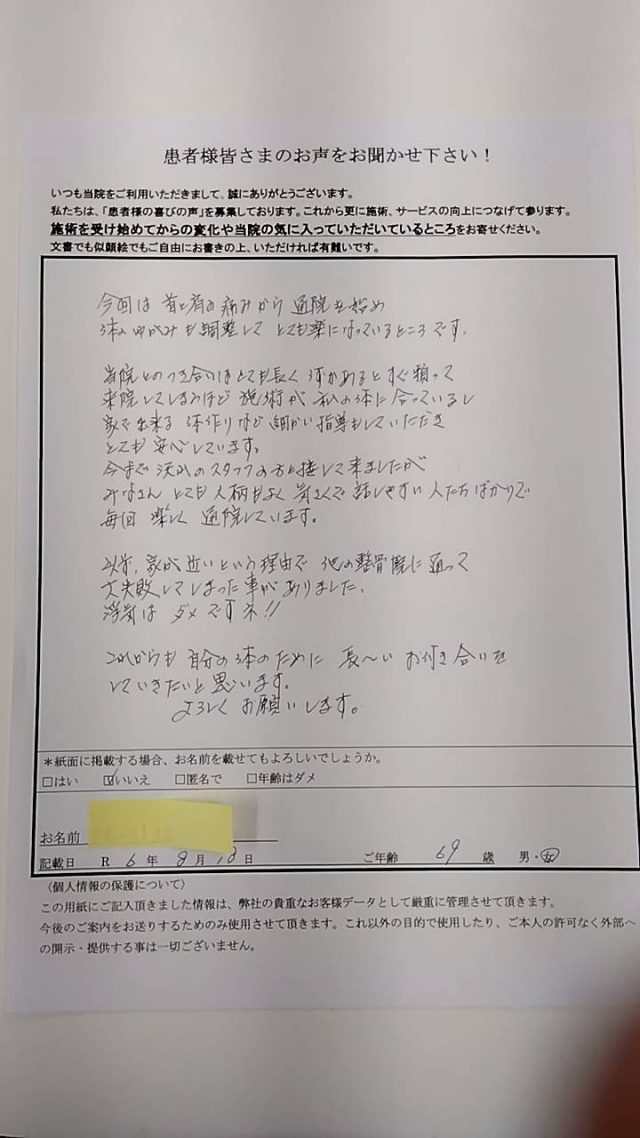 患者様皆さまのお声をお聞かせ下さい！
いつも当院をご利用いただきまして、誠にありがとうございます。
私たちは、「患者様の喜びの声」を募集しております。これから更に施術、サービスの向上につなげて参ります。
施術を受け始めてからの変化や当院の気に入っていただいているところをお寄せください。
文書でも似顔絵でもご自由にお書きの上、いただければ有難いです。
今回は 首と肩の痛みから 通院を始め
体のゆがみも調整して とても楽になっているところです。
当院とのつき合いはとても長く 何かあるとすぐ頼って
来院してしまうほど 施術が 私の体に合っているし
家で出来る 体作りなど 細かい指導もしていただき
とても 安心しています。
今まで 沢山のスタッフの方と接して来ましたが
みなさん とても人柄もよく 気さくで 話しやすい 人たちばかりで
毎回 楽しく 通院しています。
以前、家が近いという理由で 他の整骨院に通って
大失敗してしまった事がありました。
浮気は ダメですネ!!
これからも 自分の体のために 長〜い お付き合いを
していきたいと思います。
よろしく お願いします。
＊紙面に掲載する場合、お名前を載せてもよろしいでしょうか。
□はい ☑いいえ □匿名で □年齢はダメ
お名前
記載日 R 6 年 8 月 日 ご年齢 69 歳 男・女
（個人情報の保護について）
この用紙にご記入頂きました情報は、弊社の貴重なお客様データとして厳重に管理させて頂きます。
今後のご案内をお送りするためのみ使用させて頂きます。これ以外の目的で使用したり、ご本人の許可なく外部へ
の開示・提供する事は一切ございません。